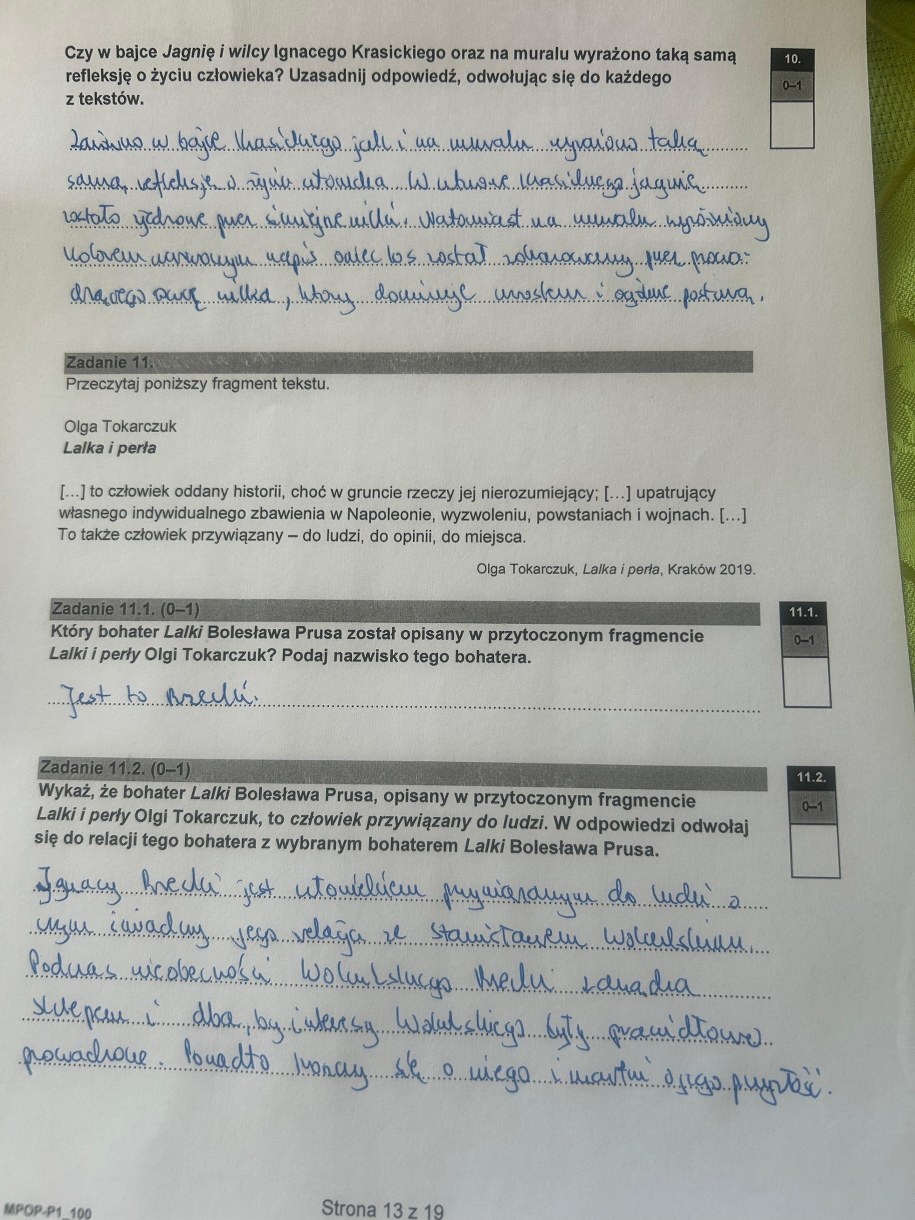 Czy w bajce Jagnię i wilcy Ignacego Krasickiego oraz na muralu wyrażono taką samą
refleksję o życiu człowieka? Uzasadnij odpowiedź, odwołując się do każdego
z tekstów.
10.
0–1
Zarówno w bajce Krasickiego jak i na muralu wyrażono taką
samą refleksję o życiu człowieka. W utworze Krasickiego jagnię
zostało zjedzone przez silniejsze wilki. Natomiast na muralu wyróżniony
kolorem czerwonym napis owiec los został zobrazowany przez prowa-
dzącego owcę wilka, który dominuje wzrostem i posturą.
Zadanie 11.
Przeczytaj poniższy fragment tekstu.
Olga Tokarczuk
Lalka i perła
[…] to człowiek oddany historii, choć w gruncie rzeczy jej nierozumiejący; […] upatrujący
własnego indywidualnego zbawienia w Napoleonie, wyzwoleniu, powstaniach i wojnach. […]
To także człowiek przywiązany – do ludzi, do opinii, do miejsca.
Olga Tokarczuk, Lalka i perła, Kraków 2019.
Zadanie 11.1. (0–1)
Który bohater Lalki Bolesława Prusa został opisany w przytoczonym fragmencie
Lalki i perły Olgi Tokarczuk? Podaj nazwisko tego bohatera.
11.1.
0–1
Jest to Rzecki.
Zadanie 11.2. (0–1)
Wykaż, że bohater Lalki Bolesława Prusa, opisany w przytoczonym fragmencie
Lalki i perły Olgi Tokarczuk, to człowiek przywiązany do ludzi. W odpowiedzi odwołaj
się do relacji tego bohatera z wybranym bohaterem Lalki Bolesława Prusa.
11.2.
0–1
Ignacy Rzecki jest człowiekiem przywiązanym do ludzi o
czym świadczy jego relacja ze Stanisławem Wokulskim.
Podczas nieobecności Wokulskiego Rzecki zarządza
sklepem i dba, by interesy Wokulskiego były prawidłowo
prowadzone. Ponadto troszczy się o niego i martwi o jego przyszłość.
MPOP-P1_100
Strona 13 z 19